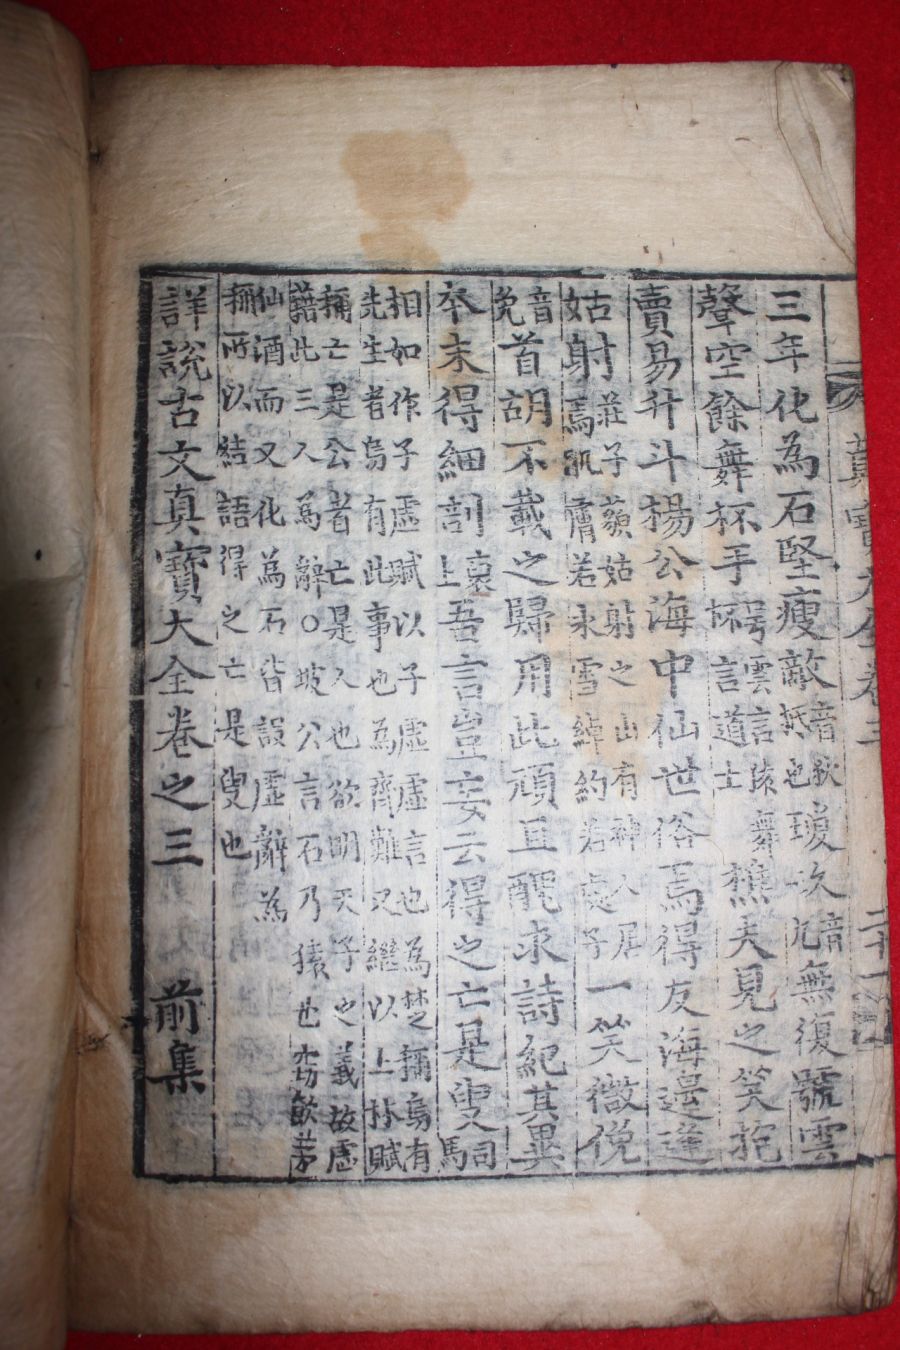 三年化為石堅瘦敵音狄抵也瓊玖音九無復號雲
聲空餘舞杯手號雲言猿舞杯言道士樵夫見之笑抱
賣易升斗楊公海中仙世俗焉得友海邊逢
姑射莊子藐姑射之山有神人居焉肌膚若氷雪綽約若處子一笑微俛
音免首胡不載之歸用此頑且醜求詩紀其異
本末得細剖上吾言豈妄云得之亡是叟司馬
相如作子虛賦以子虛虛言也為楚稱烏有
先生者烏有此事也為齊難又繼以上林賦
稱亡是公者亡是人也欲明天子之義故虛
藉此三人為辭○坡公言石乃猿也竊飲茅
仙酒而又化為石皆設虛辭為
稱所以結語得之亡是叟也
詳說古文真寶大全卷之三 前集